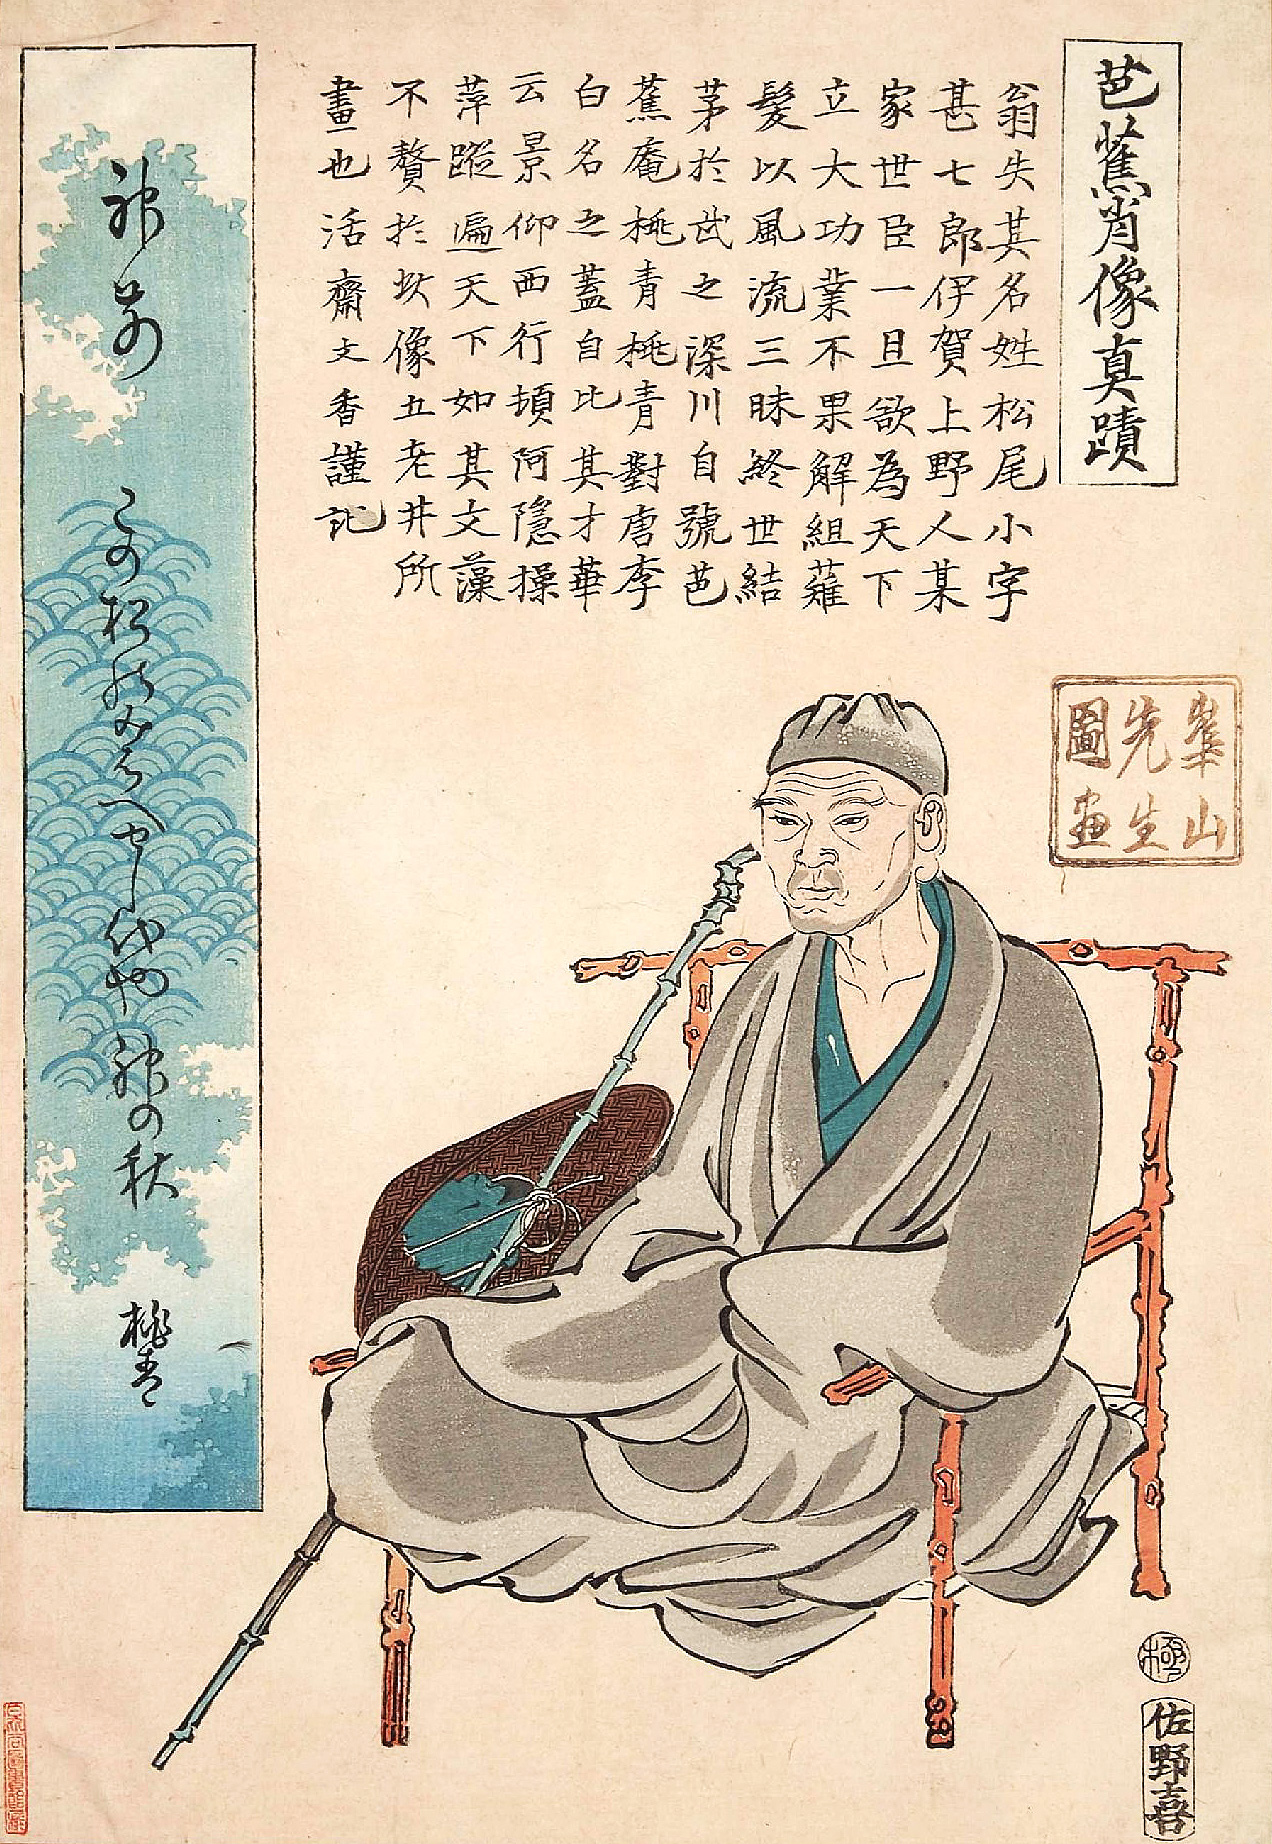 芭蕉肖像真蹟
翁失其名姓松尾小字
甚七郎伊賀上野人某
家世臣一旦欲為天下
立大功業不果解組薙
髮以風流三昧終世結
茅於武之深川自號芭
蕉庵桃青桃青對唐李
白名之蓋自比其才華
云景仰西行頓阿隱操
萍蹤遍天下如其文藻
不贅於此像五老井所
畫也活齋文香謹記
崋山
先生
圖画
神前
この松のみはへせし代や 神の秋
桃青
極
佐野喜